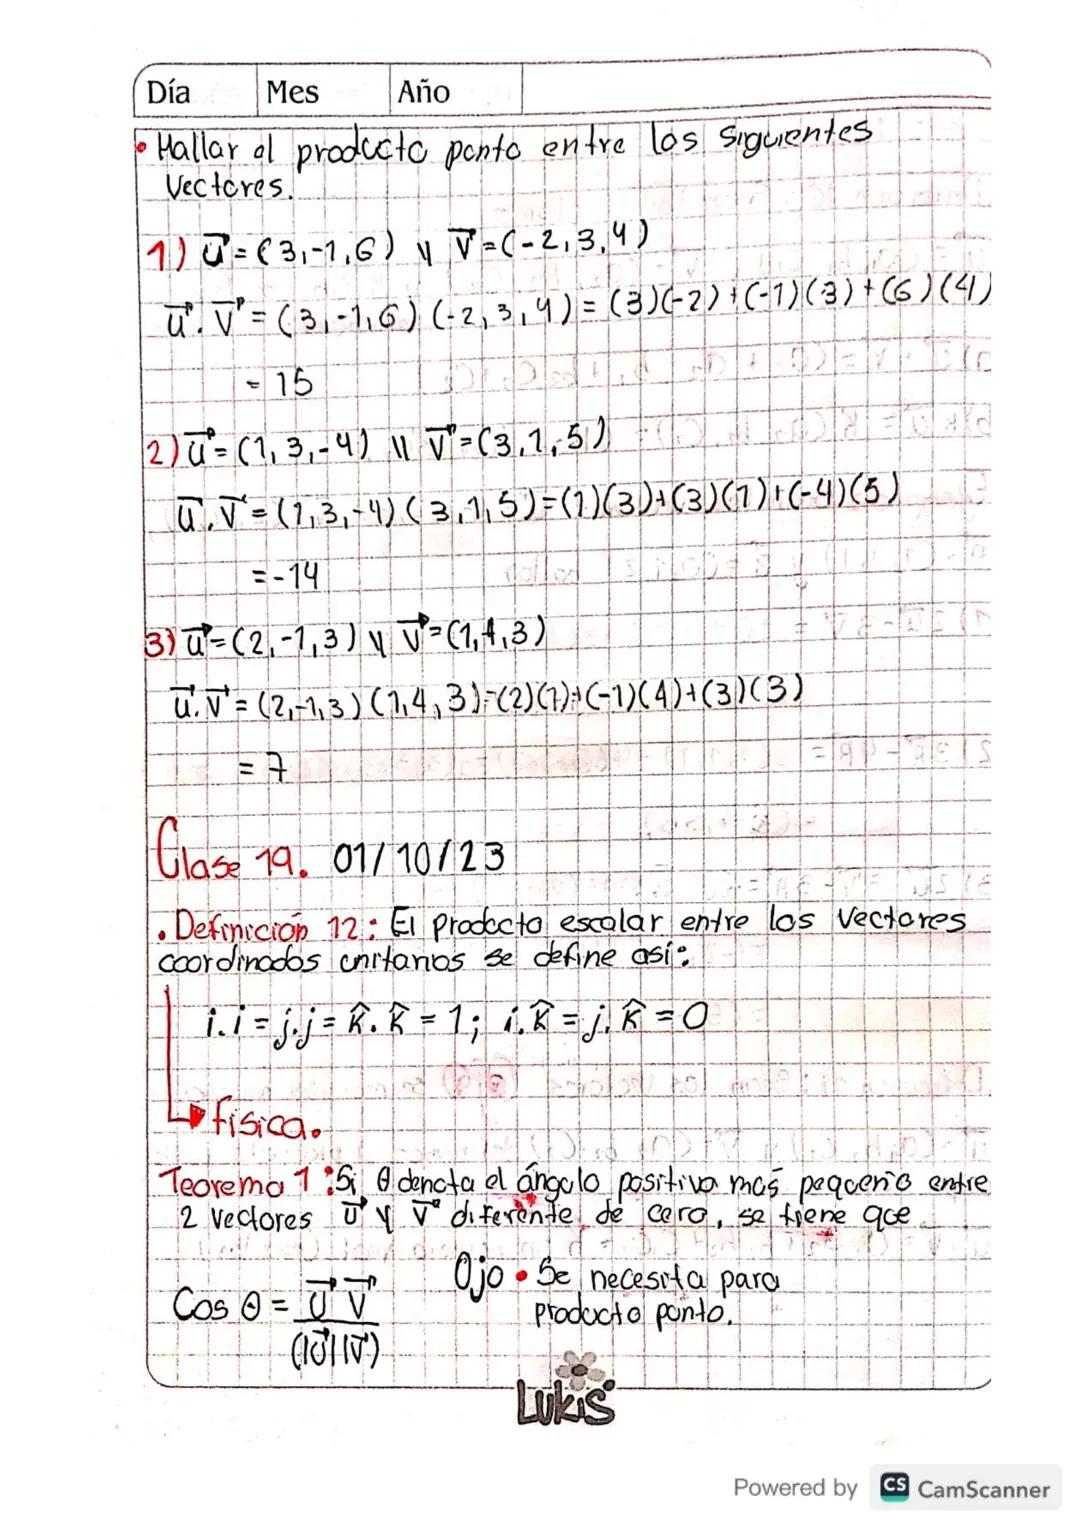 Día Mes Año
• Hallar el producto punto entre los siguientes
Vectores.
1) u⃗ = (3,-1,6) y v⃗ = (-2,3,4)
u⃗ . v⃗ = (3,-1,6) (-2,3,4) = (3)(-2)+(-1)(3)+(6)(4)
= 15
2) u⃗ = (1,3,-4) y v⃗ = (3,1,5)
u⃗ . v⃗ = (1,3,-4) (3,1,5) = (1)(3)+(3)(1)+(-4)(5)
= -14
3) u⃗ = (2,-1,3) y v⃗ = (1,4,3)
u⃗ . v⃗ = (2,-1,3) (1,4,3) = (2)(1)+(-1)(4)+(3)(3)
= 7
Clase 19. 01/10/23
• Definición 12: El producto escalar entre los vectores
coordinados unitarios se define así:
i.i = j.j = k̂.k̂ = 1; i.k̂ = j.k̂ = 0
física.
Teorema 1: Si θ denota el ángulo positivo más pequeño entre
2 vectores u⃗ y v⃗ diferente de cero, se tiene que
Cos θ = u⃗ v⃗ / (|u⃗| |v⃗|)
Ojo • Se necesita para
producto punto.
LUKIS
Powered by CS CamScanner